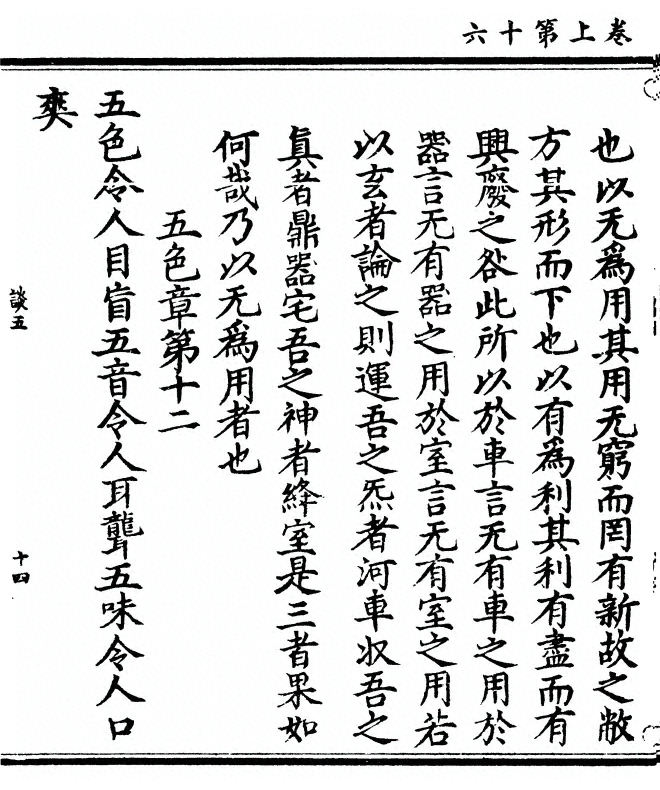 卷上第十六
也以无爲用其用无窮而罔有新故之敝
方其形而下也以有爲利其利有盡而有
興廢之咎此所以於車言无有車之用於
器言无有器之用於室言无有室之用若
以玄者論之則運吾之炁者河車收吾之
眞者鼎器宅吾之神者絳室是三者果如
何哉乃以无爲用者也
五色章第十二
五色令人目盲五音令人耳聾五味令人口
爽
談五
十四